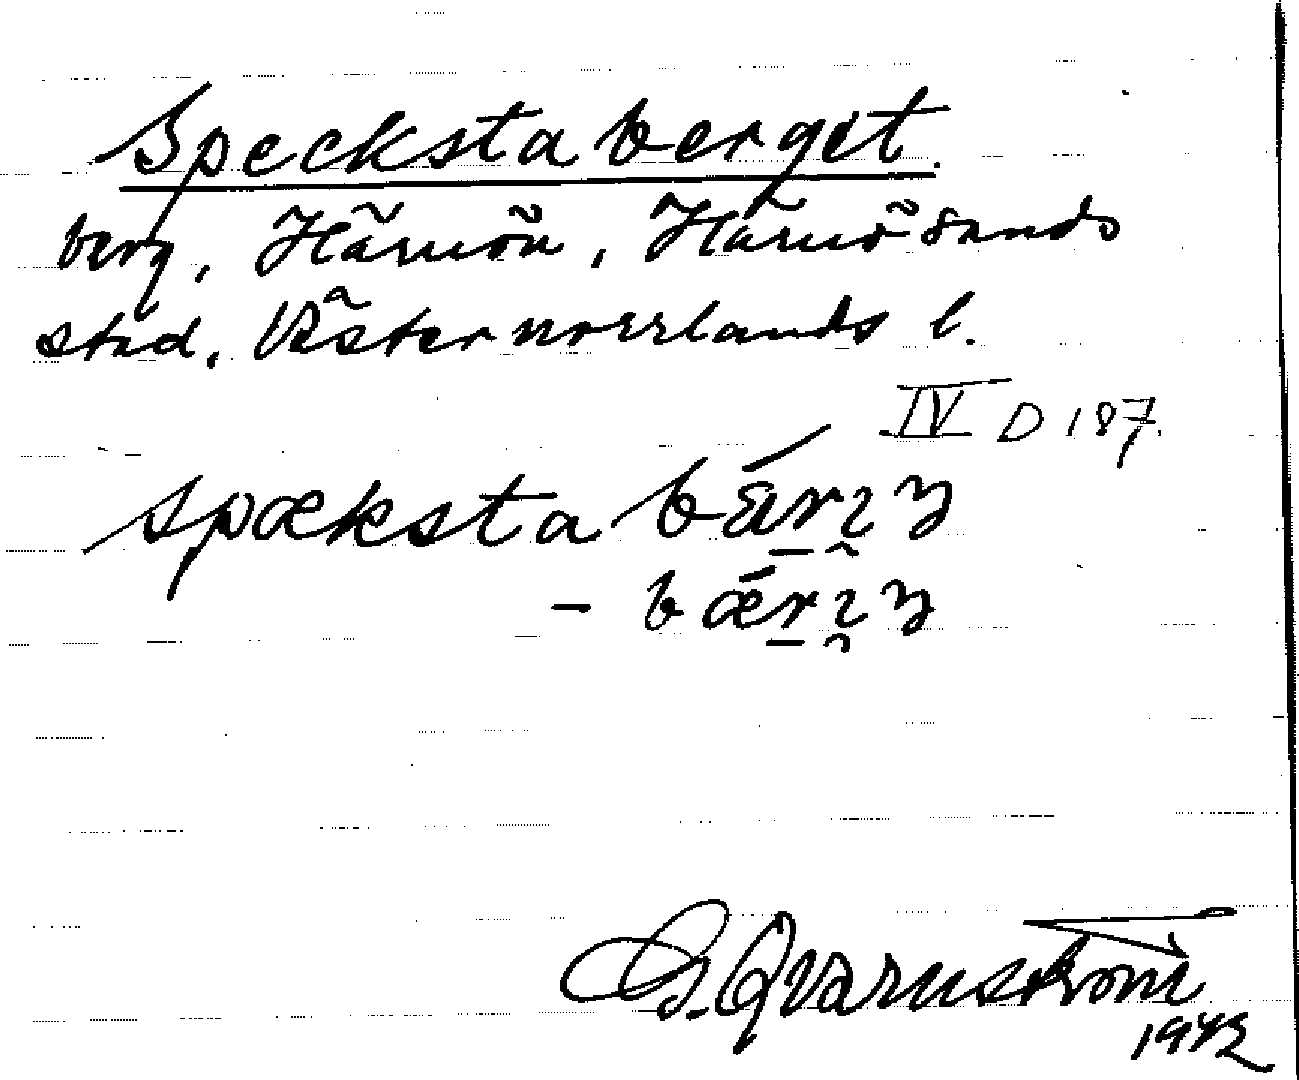 Specksta berget.
berg, Härnön, Härnösands
stad, Västernorrlands l.
IV D 187.
spæksta
- b
G. Qvarnström
1942